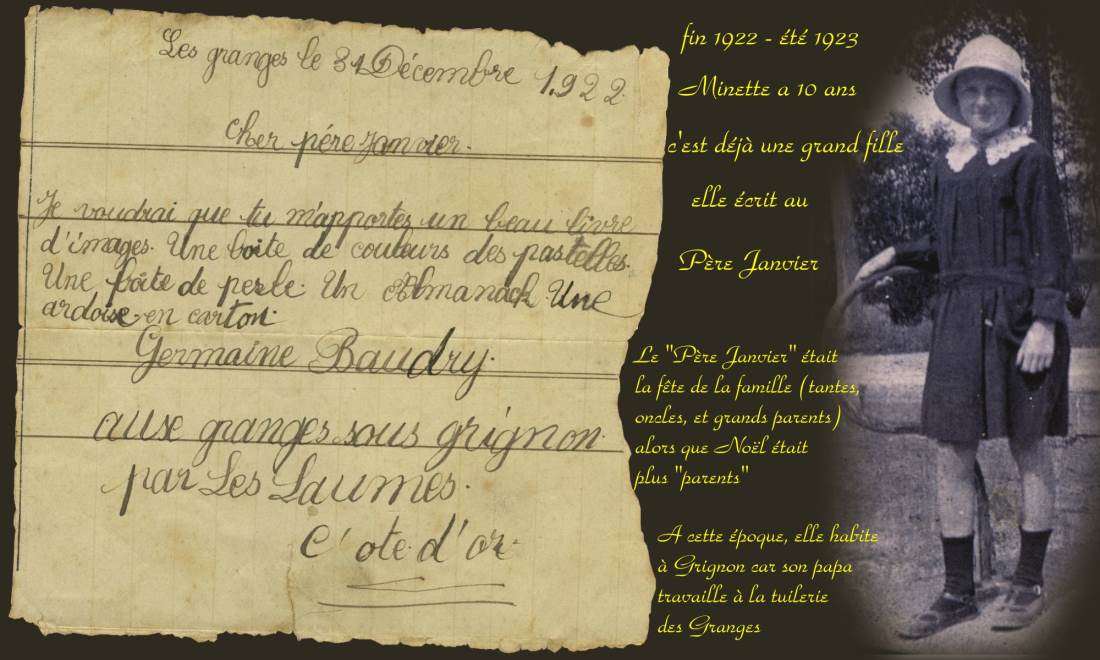 Les granges le 31 Décembre 1922
cher père janvier.
Je voudrai que tu m'apportes un beau livre
d'images. Une boite de couleurs des pastelles.
Une boîte de perle. Un Almanach Une
ardoise en carton.
Germaine Baudry.
ause granges sous grignon.
par Les Laumes.
C'ote d'or.
fin 1922 - été 1923
Minette a 10 ans
c'est déjà une grand fille
elle écrit au
Père Janvier
Le "Père Janvier" était
la fête de la famille (tantes,
oncles, et grands parents)
alors que Noël était
plus "parents"
A cette époque, elle habite
à Grignon car son papa
travaille à la tuilerie
des Granges